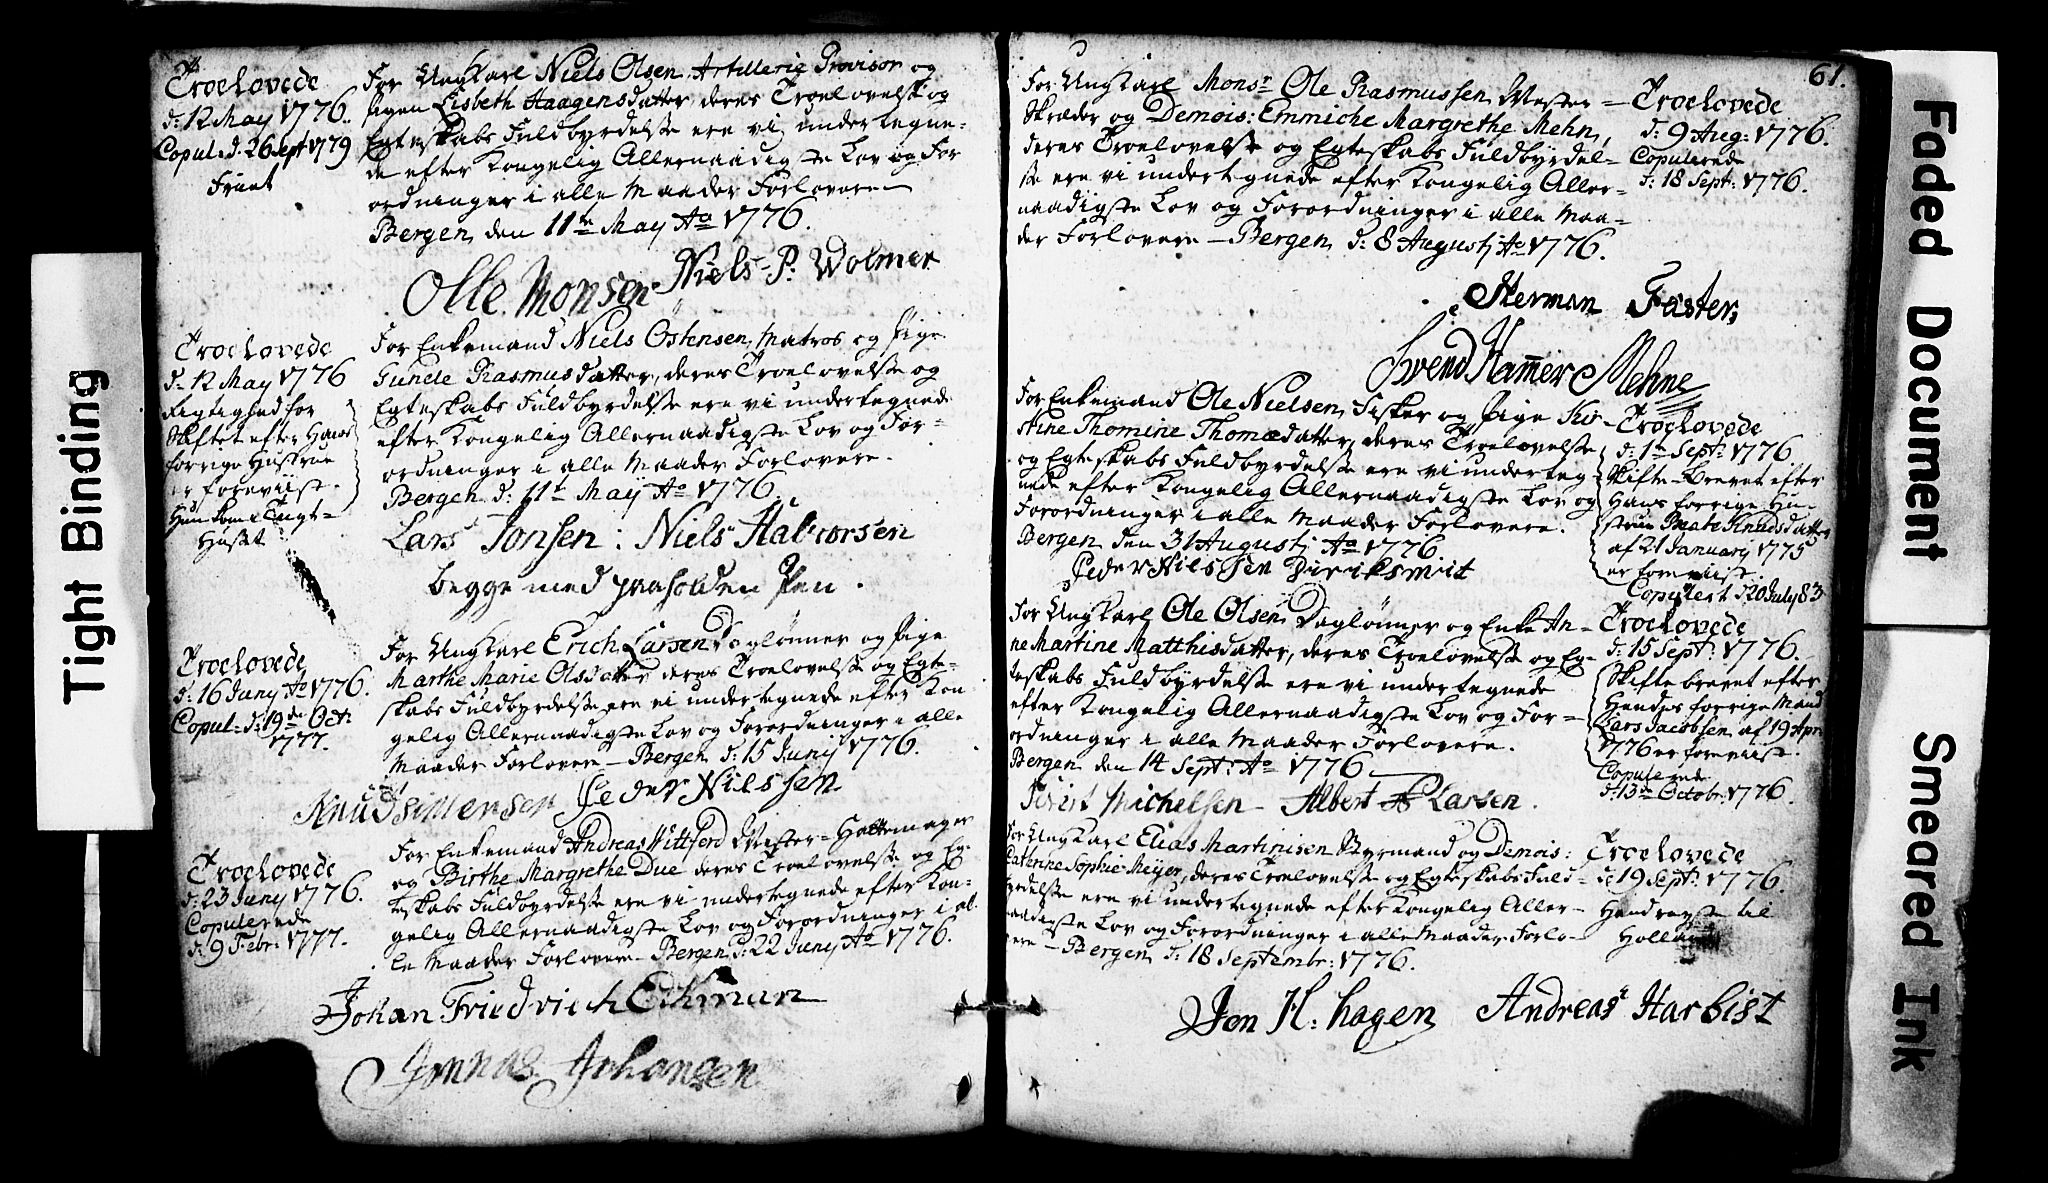 Troelovede
d: 12 May 1776.
Copul: d. 26 Sept 1779
For Ungkarl Niels Olsen, Artillerie Provisor og
Pigen Lisbeth Haagensdatter, deres Troelovelse og
Egteskabs Fuldbyrdelse ere vi undertegne-
de efter Kongelig Allernaadigste Lov og For
ordninger i alle Maader Forlovere
Bergen den 11te May Ao 1776.
Niels P: Wolmer
Olle Monsen
Troelovede
d: 12 May 1776
Rigtighed for
Skiftet efter Hans
forrige Hustrue
er foreviist.
Hun kom i Tugt-
Huset
For Enkemand Niels Östensen, Matros og Pige
Gunele Rasmusdatter, deres Troelovelse og
Egteskabs Fuldbyrdelse ere vi undertegnede
efter Kongelig Allernaadigste Lov og For-
ordninger i alle Maader Forlovere.
Bergen d: 11te Maÿ Ao 1776.
Lars Jonsen : Niels Halvorsen
begge med paaholden Pen.
Troelovede
d: 16 Juny Ao 1776.
Copul: d: 19de Oct:
1777.
For Ungkarl Erich Larsen Daglønner og Pige
Marthe Marie Olsdatter deres Troelovelse og Egte-
skabs Fuldbyrdelse ere vi undertegnede efter Kon-
gelig Allernaadigste Lov og Forordninger i alle
Maader Forlovere - Bergen d: 15 Junij 1776.
Knud Simensen Peder Nielssen
Troelovede
d: 23 Juny 1776.
Copulerede
d: 9 Febr: 1777.
For Enkemand Andreas Wittferd Mester-Hattemager
og Birthe Margrethe Due deres Troelovelse og Eg-
teskabs Fuldbyrdelse ere vi undertegnede efter Kon-
gelig Allernaadigste Lov og Forordninger i al-
le Maader Forlovere - Bergen d: 22 Juny Ao 1776.
Johan Friedrich Eckman
Jonnas Johansen
61.
For Ungkarl Monsr Ole Rasmussen Mester-
Skræder og Demois: Emmiche Margrethe Mehn,
deres Troelovelse og Egteskabs Fuldbyrdel-
se ere vi undertegnede efter Kongelig Aller-
naadigste Lov og Forordninger i alle Maa-
der Forlovere - Bergen d: 8 Augusti Ao 1776.
Troelovede
d: 9 Aug: 1776.
Copulerede
d: 18 Sept: 1776.
Herman Faster
Svend Hammer Mehne
For Enkemand Ole Nielsen, Fisker og Pige Kir-
stine Thomine Thomædatter, deres Troelovelse
og Egteskabs Fuldbyrdelse ere vi underteg-
nede efter Kongelig Allernaadigste Lov og
Forordninger i alle Maader Forlovere.
Bergen den 31 Augusti Ao 1776.
Peder Nielssen
Troelovede
d: 1te Sept: 1776
Skifte-Brevet efter
Hans forrige Hu-
strue Beate Knudsdatter
af 21 January 1775
er foreviist.
Copuleret d: 20 July 83
For Ungkarl Ole Olsen Daglønner og Enke An-
ne Martine Matthisdatter, deres Troelovelse og Eg-
teskabs Fuldbyrdelse ere vi undertegnede
efter Kongelig Allernaadigste Lov og For-
ordninger i alle Maader Forlovere.
Bergen den 14 Sept: Ao 1776
Michelsen - Albert Larsen.
Troelovede
d: 15 Sept: 1776.
Skiftebrevet efter
Hendes forrige Mand
Lars Jacobsen af 19 Apr
1776 er foreviist.
Copulerede
d: 13de Octobr: 1776.
For Ungkarl Elias Martinisen Styrmand og Demois:
Catherine Sophie Meÿer, deres Troelovelse og Egteskabs Fuld-
byrdelse ere vi undertegnede efter Kongelig Aller-
naadigste Lov og Forordninger i alle Maader Forlo-
vere - Bergen d: 18 Septembr: 1776.
Troelovede
d: 19 Sept: 1776.
Hand reyste til
Holland
Jon H: hagen Andreas Harbist
Tight Binding
Faded Document
Smeared Ink